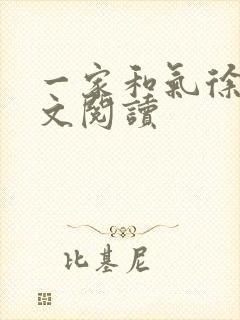 一家和氣徐
文閱讀
比基尼